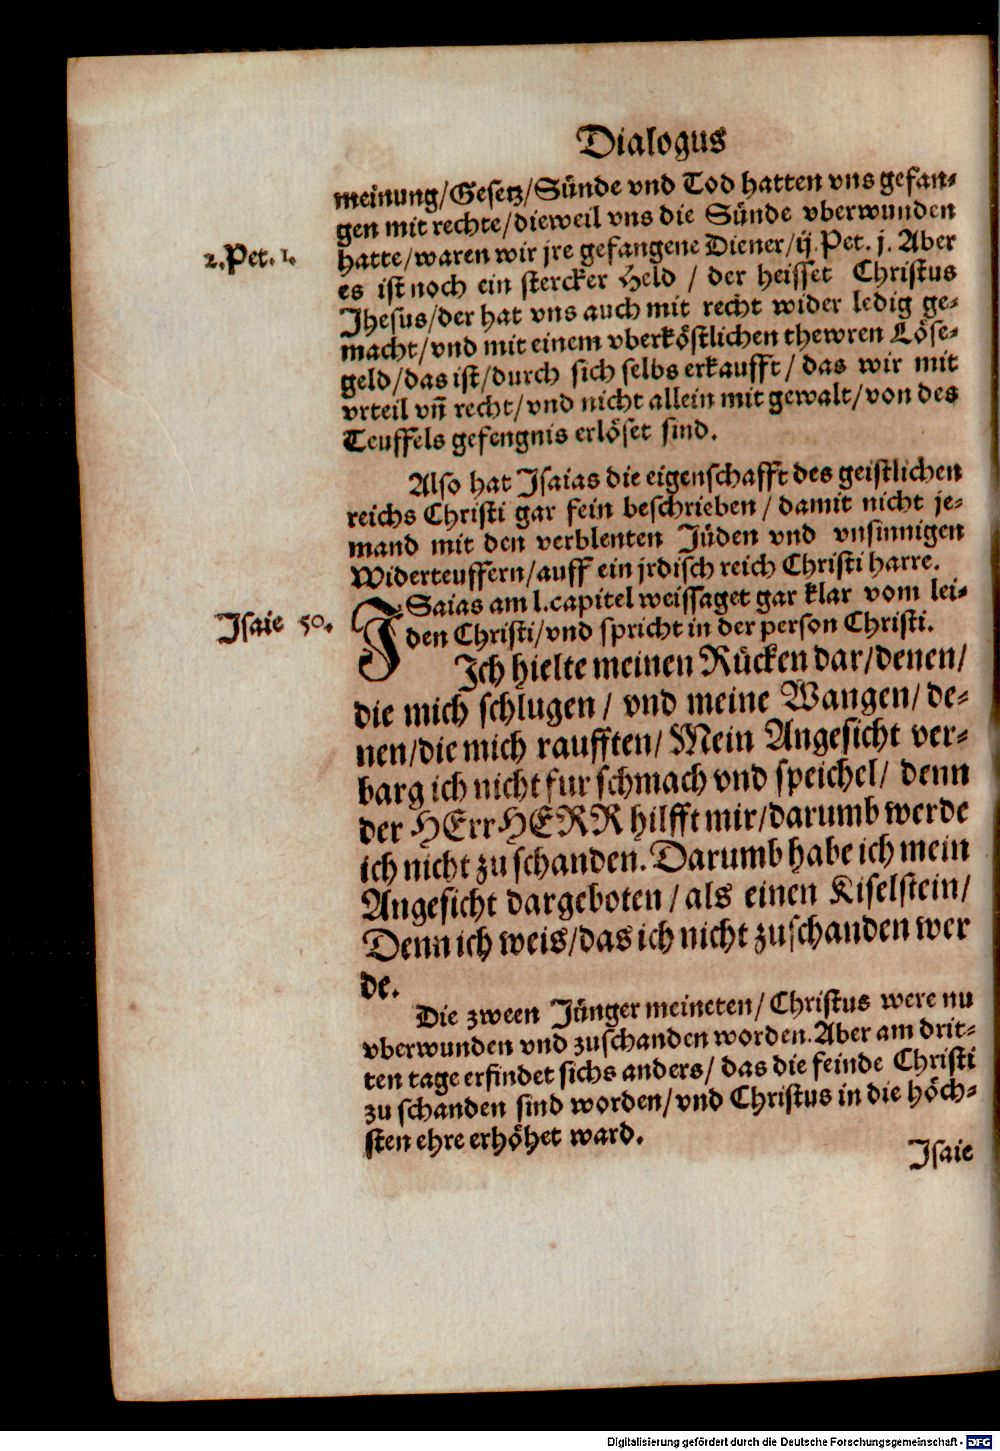 Dialogus
meinung/Gesetz/Sünde vnd Tod hatten vns gefan-
gen mit rechte/dieweil vns die Sünde vberwunden
2.Pet. 1.
hatte/waren wir jre gefangene Diener/ij. Pet. j. Aber
es ist noch ein stercker Held / der heisset Christus
Jhesus/der hat vns auch mit recht wider ledig ge-
macht/vnd mit einem vberköstlichen thewren Löse-
geld/das ist/durch sich selbs erkaufft/das wir mit
vrteil vñ recht/vnd nicht allein mit gewalt/von des
Teuffels gefengnis erlöset sind.
Also hat Isaias die eigenschafft des geistlichen
reichs Christi gar fein beschrieben/damit nicht je-
mand mit den verblenten Jüden vnd vnsinnigen
Widerteuffern/auff ein jrdisch reich Christi harre.
Isaie 50.
ISaias am l.capitel weissaget gar klar vom lei-
den Christi/vnd spricht in der person Christi.
Ich hielte meinen Rücken dar/denen/
die mich schlugen/ vnd meine Wangen/de-
nen/die mich raufften/Mein Angesicht ver-
barg ich nicht fur schmach vnd speichel/ denn
der HErrHERR hilfft mir/darumb werde
ich nicht zu schanden. Darumb habe ich mein
Angesicht dargeboten/als einen Kiselstein/
Denn ich weis/das ich nicht zuschanden wer
de.
Die zween Jünger meineten/ Christus were nu
vberwunden vnd zuschanden worden. Aber am drit-
ten tage erfindet sichs anders/ das die feinde Christi
zu schanden sind worden/vnd Christus in die höch-
sten ehre erhöhet ward.
Isaie
Digitalisierung gefördert durch die Deutsche Forschungsgemeinschaft - DFG